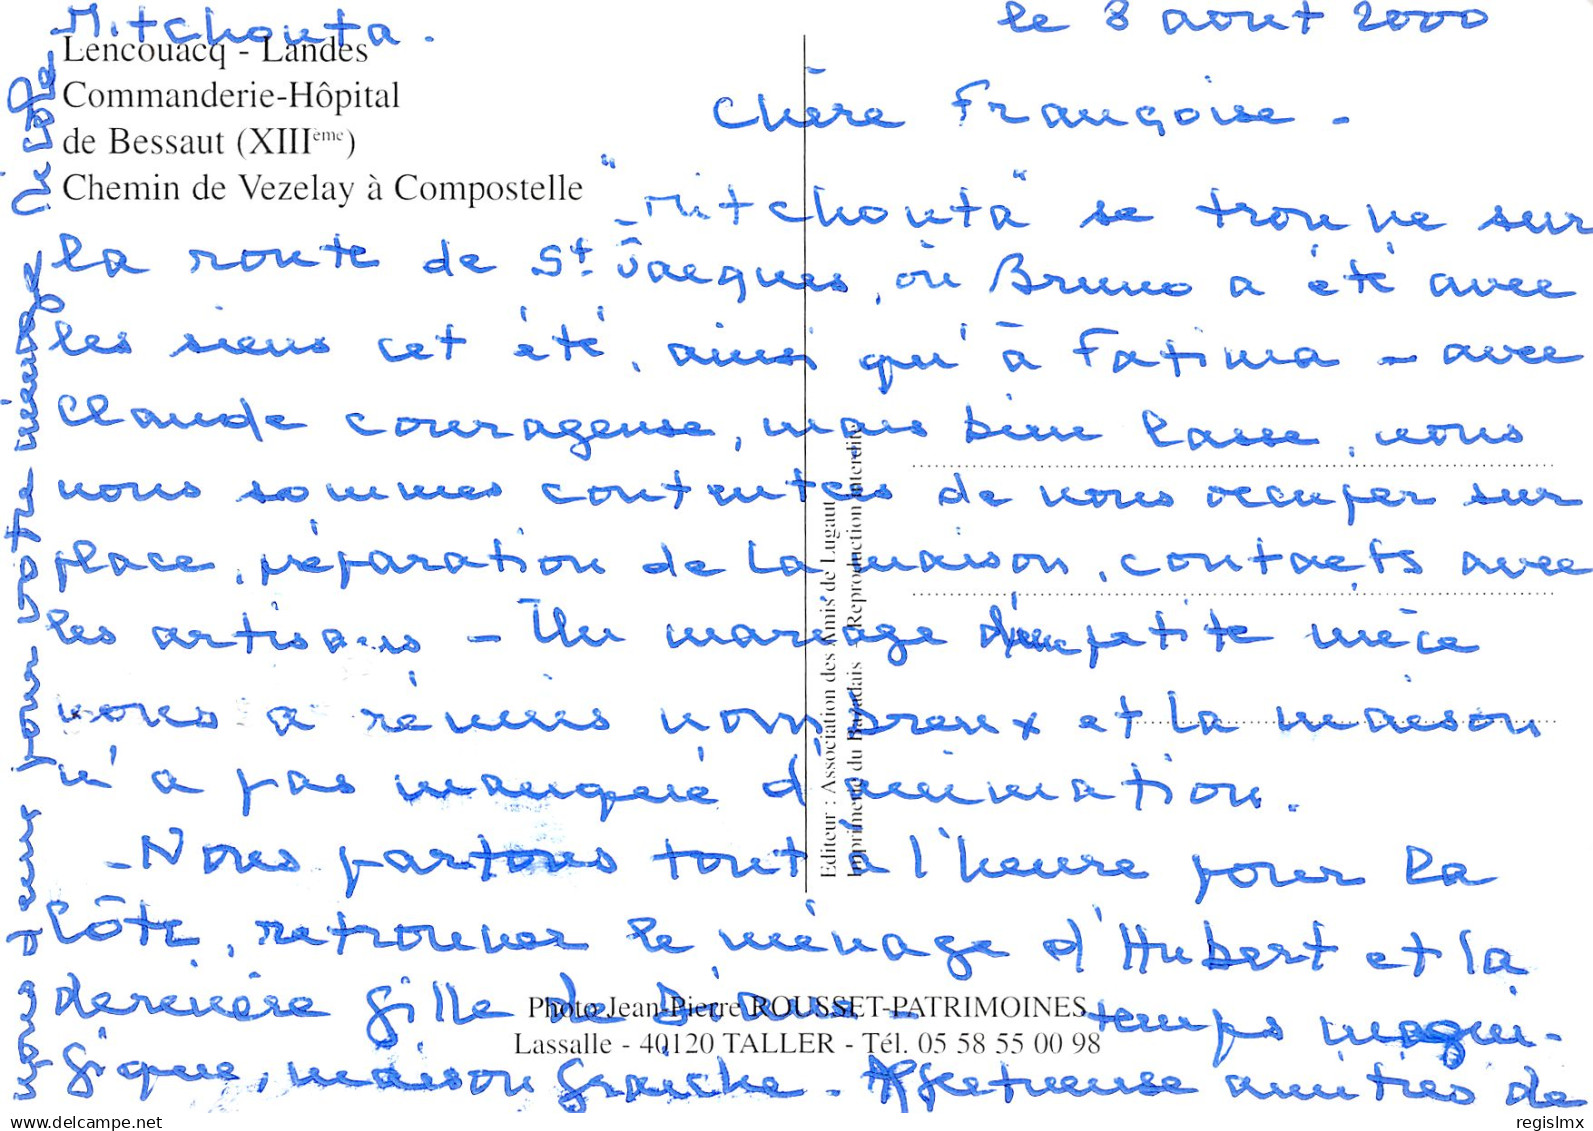 Mitchouta.
le 8 aout 2000
Lencouacq - Landes
Commanderie-Hôpital
de Bessaut (XIIIème)
Chemin de Vezelay à Compostelle
Chère Françoise -
"Mitchouta" se trouve sur
la route de St Jacques, où Bruno a été avec
les siens cet été, ainsi qu'à Fatima - avec
Claude courageuse, mais bien lasse, nous
nous sommes contentés de nous occuper sur
place, préparation de la maison, contacts avec
les artisans - Un mariage d'une petite nièce
nous a réunis nombreux et la maison
n'a pas manqué d'animation.
- Nous partons tout à l'heure pour la
côte, retrouver le ménage d'Hubert et la
dernière fille de - temps magni-
fique, maison fraiche - Affectueuse amitiés de
nous deux pour votre ménage
Editeur : Association des Amis de Lugaut
Imprimerie du Bazadais - Reproduction interdite
Photo Jean-Pierre ROUSSET-PATRIMOINES
Lassalle - 40120 TALLER - Tél. 05 58 55 00 98
www.delcampe.net
regislmx